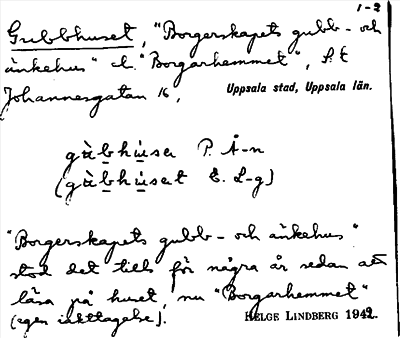 1-2
Gubbhuset, "Borgerskapets gubb- och
änkehus" el. "Borgarhemmet", S:t
Johannesgatan 16,
Uppsala stad, Uppsala län.
gùbhúsəu P. Å-n
(gùbhúsət E. L-g)
"Borgerskapets gubb- och änkehus"
stod det tills för några år sedan att
läsa på huset, nu "Borgarhemmet"
(egen iakttagelse).
HELGE LINDBERG 1942.